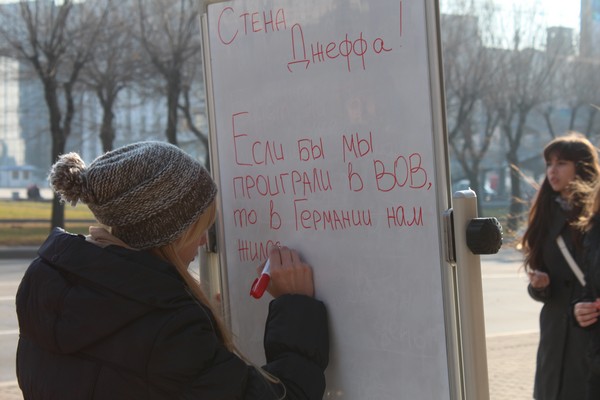 Стена
Джеффа!
Если бы мы
проиграли в ВОВ,
то в Германии нам
жило